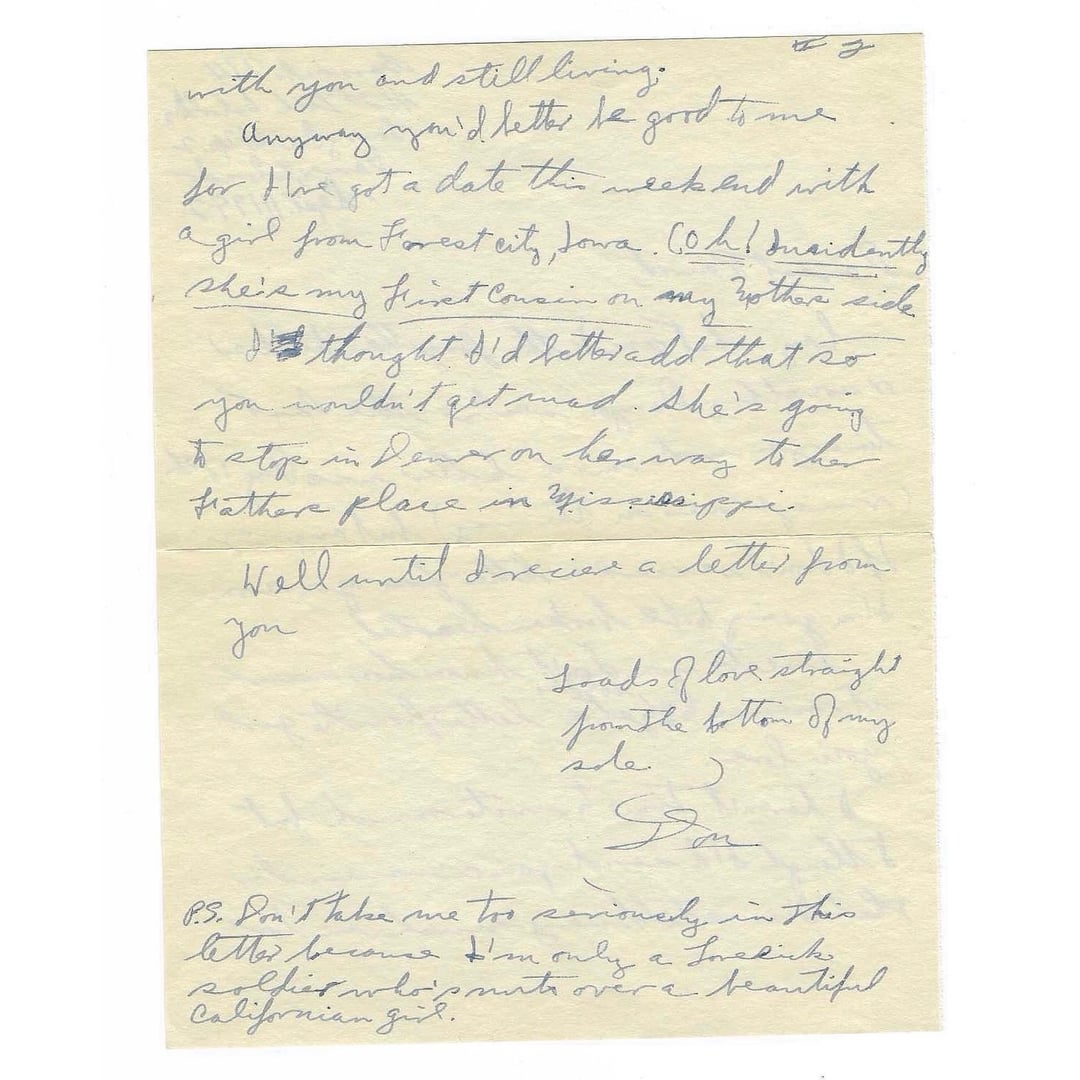 # 2
with you and still living.
Anyway you'd better be good to me
for I've got a date this weekend with
a girl from Forest city, Iowa. (Oh! Insidently
she's my First Cousin on my Mothers side
I thought I'd better add that so
you wouldn't get mad. She's going
to stop in Denver on her way to her
Fathers place in Mississippi.
Well until I recieve a letter from
you
Loads of love straight
from the bottom of my
sole.
Don
P.S. Don't take me too seriously in this
letter because I'm only a Lovesick
soldier who's nuts over a beautiful
Californian girl.